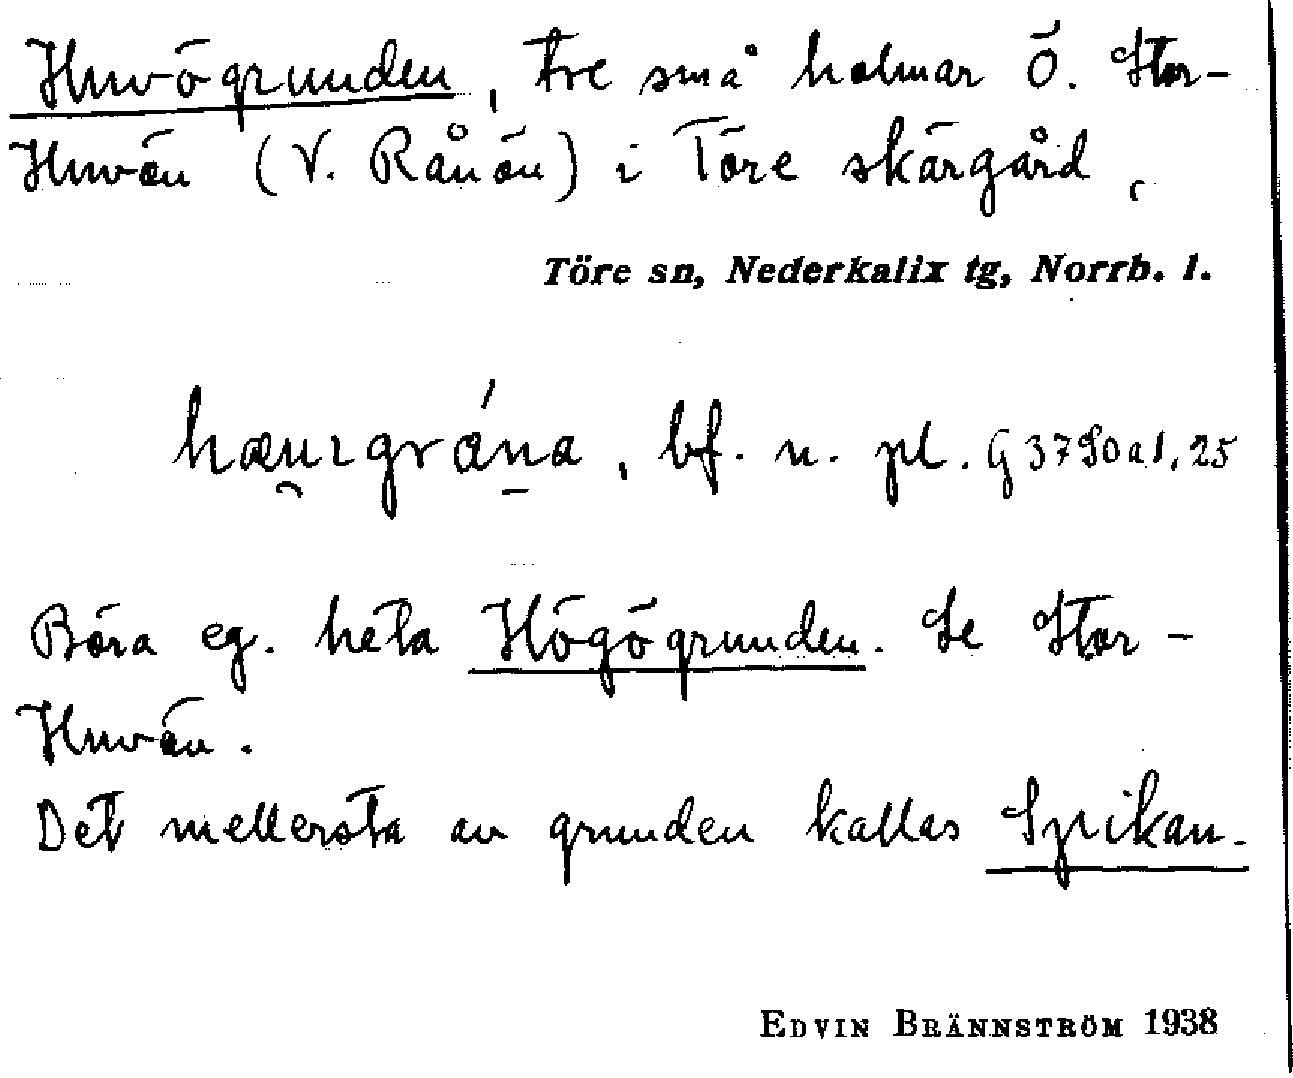 Huvögrunden, tre små holmar Ö. Stor-
Huvön (V. Rånön) i Töre skärgård.
Töre sn, Nederkalix tg, Norrb. l.
bf. n. pl. G 3790 a1, 25
Böra eg. heta Högögrunden. Se Stor-
Huvön.
Det mellersta av grunden kallas Spikan.
EDVIN BRÄNNSTRÖM 1938